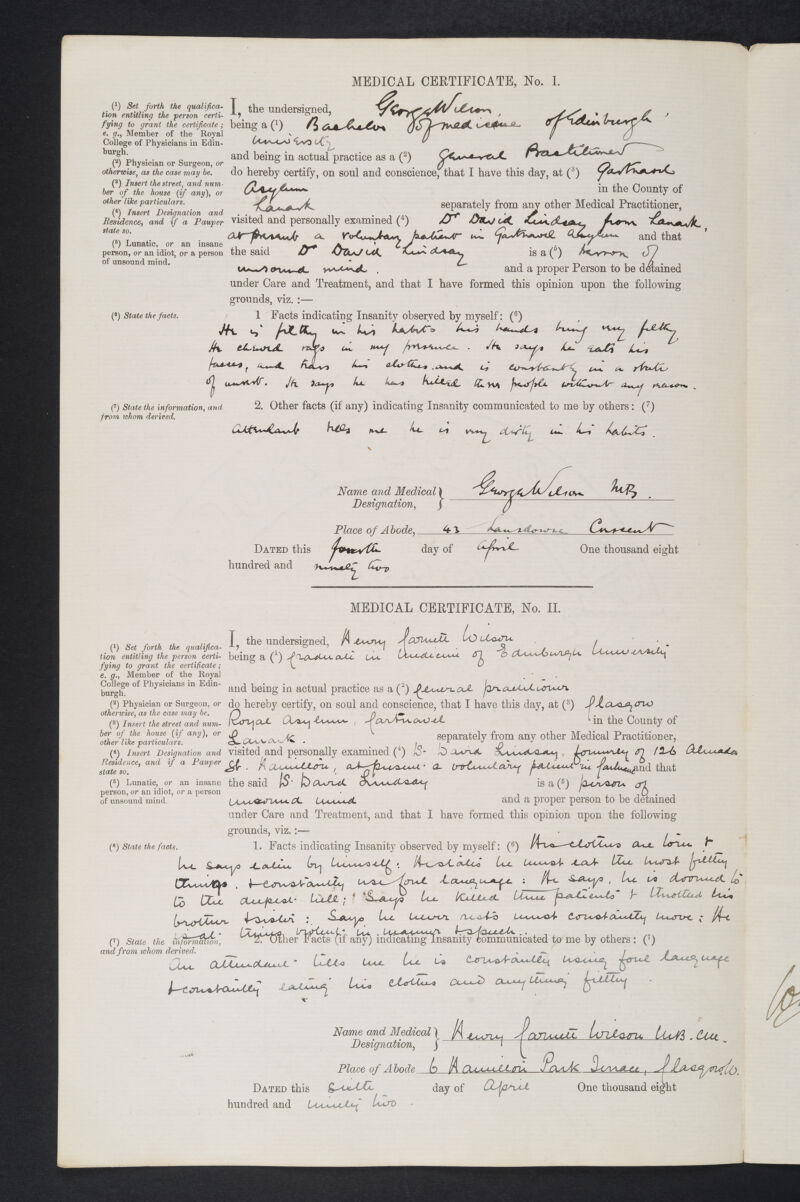 MEDICAL CERTIFICATE, No. I.
(¹) Set forth the qualifica-
tion entitling the person certi-
fying to grant the certificate;
e. g., Member of the Royal
College of Physicians in Edin-
burgh.
(²) Physician or Surgeon, or
otherwise, as the case may be.
(³) Insert the street, and num-
ber of the house (if any), or
other like particulars.
(⁴) Insert Designation and
Residence, and if a Pauper
state so.
(⁵) Lunatic, or an insane
person, or an idiot, or a person
of unsound mind.
I, the undersigned, George Wilson,
being a (¹) Bachelor of medicine of Edinburgh
University
and being in actual practice as a (²) general Practitioner
do hereby certify, on soul and conscience, that I have this day, at (³) Gartnavel
Asylum in the County of
Lanark separately from any other Medical Practitioner,
visited and personally examined (⁴) Dr David Lindsay from Lanark,
at present a voluntary patient in Gartnavel Asylum and that
the said Dr David Lindsay is a (⁵) person of
unsound mind. and a proper Person to be detained
under Care and Treatment, and that I have formed this opinion upon the following
grounds, viz. :—
(⁶) State the facts.
1 Facts indicating Insanity observed by myself: (⁶)
He is filthy in his habits his hands being very filthy
He chewed rags in my presence. He says he eats his
faeces, and tears his clothes and is constantly in a state
of unrest. He says he has killed three people without any reason.
(⁷) State the information, and
from whom derived.
2. Other facts (if any) indicating Insanity communicated to me by others: (⁷)
Attendant tells me he is very dirty in his habits.
Name and Medical Designation, George Wilson MB.
Place of Abode, 43 Lansdowne Crescent
DATED this fourth day of April One thousand eight
hundred and ninety two
MEDICAL CERTIFICATE, No. II.
(¹) Set forth the qualifica-
tion entitling the person certi-
fying to grant the certificate;
e. g., Member of the Royal
College of Physicians in Edin-
burgh.
(²) Physician or Surgeon, or
otherwise, as the case may be.
(³) Insert the street and num-
ber of the house (if any), or
other like particulars.
(⁴) Insert Designation and
Residence, and if a Pauper
state so.
(⁵) Lunatic, or an insane
person, or an idiot, or a person
of unsound mind.
I, the undersigned, Henry Garnett Wilson
being a (¹) Graduate in Medicine of Edinburgh University
and being in actual practice as a (²) General practitioner
do hereby certify, on soul and conscience, that I have this day, at (³) Glasgow
Royal Asylum, Gartnavel in the County of
Lanark. separately from any other Medical Practitioner,
visited and personally examined (⁴) Dr. David Lindsay, formerly of 126 Almada
St. Hamilton, at present a voluntary patient in Gartnavel and that
the said Dr. David Lindsay is a (⁵) person of
unsound mind and a proper person to be detained
under Care and Treatment, and that I have formed this opinion upon the following
grounds, viz. :—
(⁶) State the facts.
1. Facts indicating Insanity observed by myself: (⁶) His clothes are torn &
he says eaten by himself: He states he must eat the most filthy
things, & constantly use foul language: He says, he is doomed to
to the deepest hell; Says he killed three patients & throttled his
brother & sister: Says he never rests must constantly move: He
is at times violent in manner & speech.
(⁷) State the information,
and from whom derived.
2. Other Facts (if any) indicating Insanity communicated to me by others: (⁷)
An attendant tells me he is constantly using foul language
& constantly eating his clothes and anything filthy.
Name and Medical Designation, Henry Garnett Wilson MB. CM.
Place of Abode 6 Hamilton Park Terrace, Glasgow W.
DATED this Sixth day of April One thousand eight
hundred and ninety two.